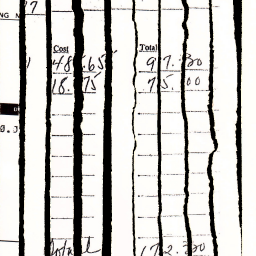 Cost Total
48.65 97.30
18.75 75.00
Total 172.30